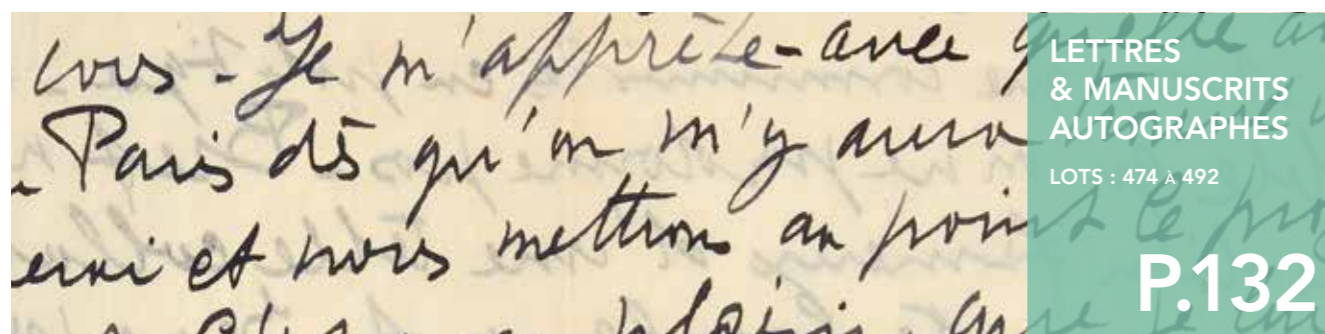 vous - Je m'apprête - avec quelle
Paris dès qu'on m'y aura
et nous mettrons au point le
LETTRES
& MANUSCRITS
AUTOGRAPHES
LOTS : 474 À 492
P.132